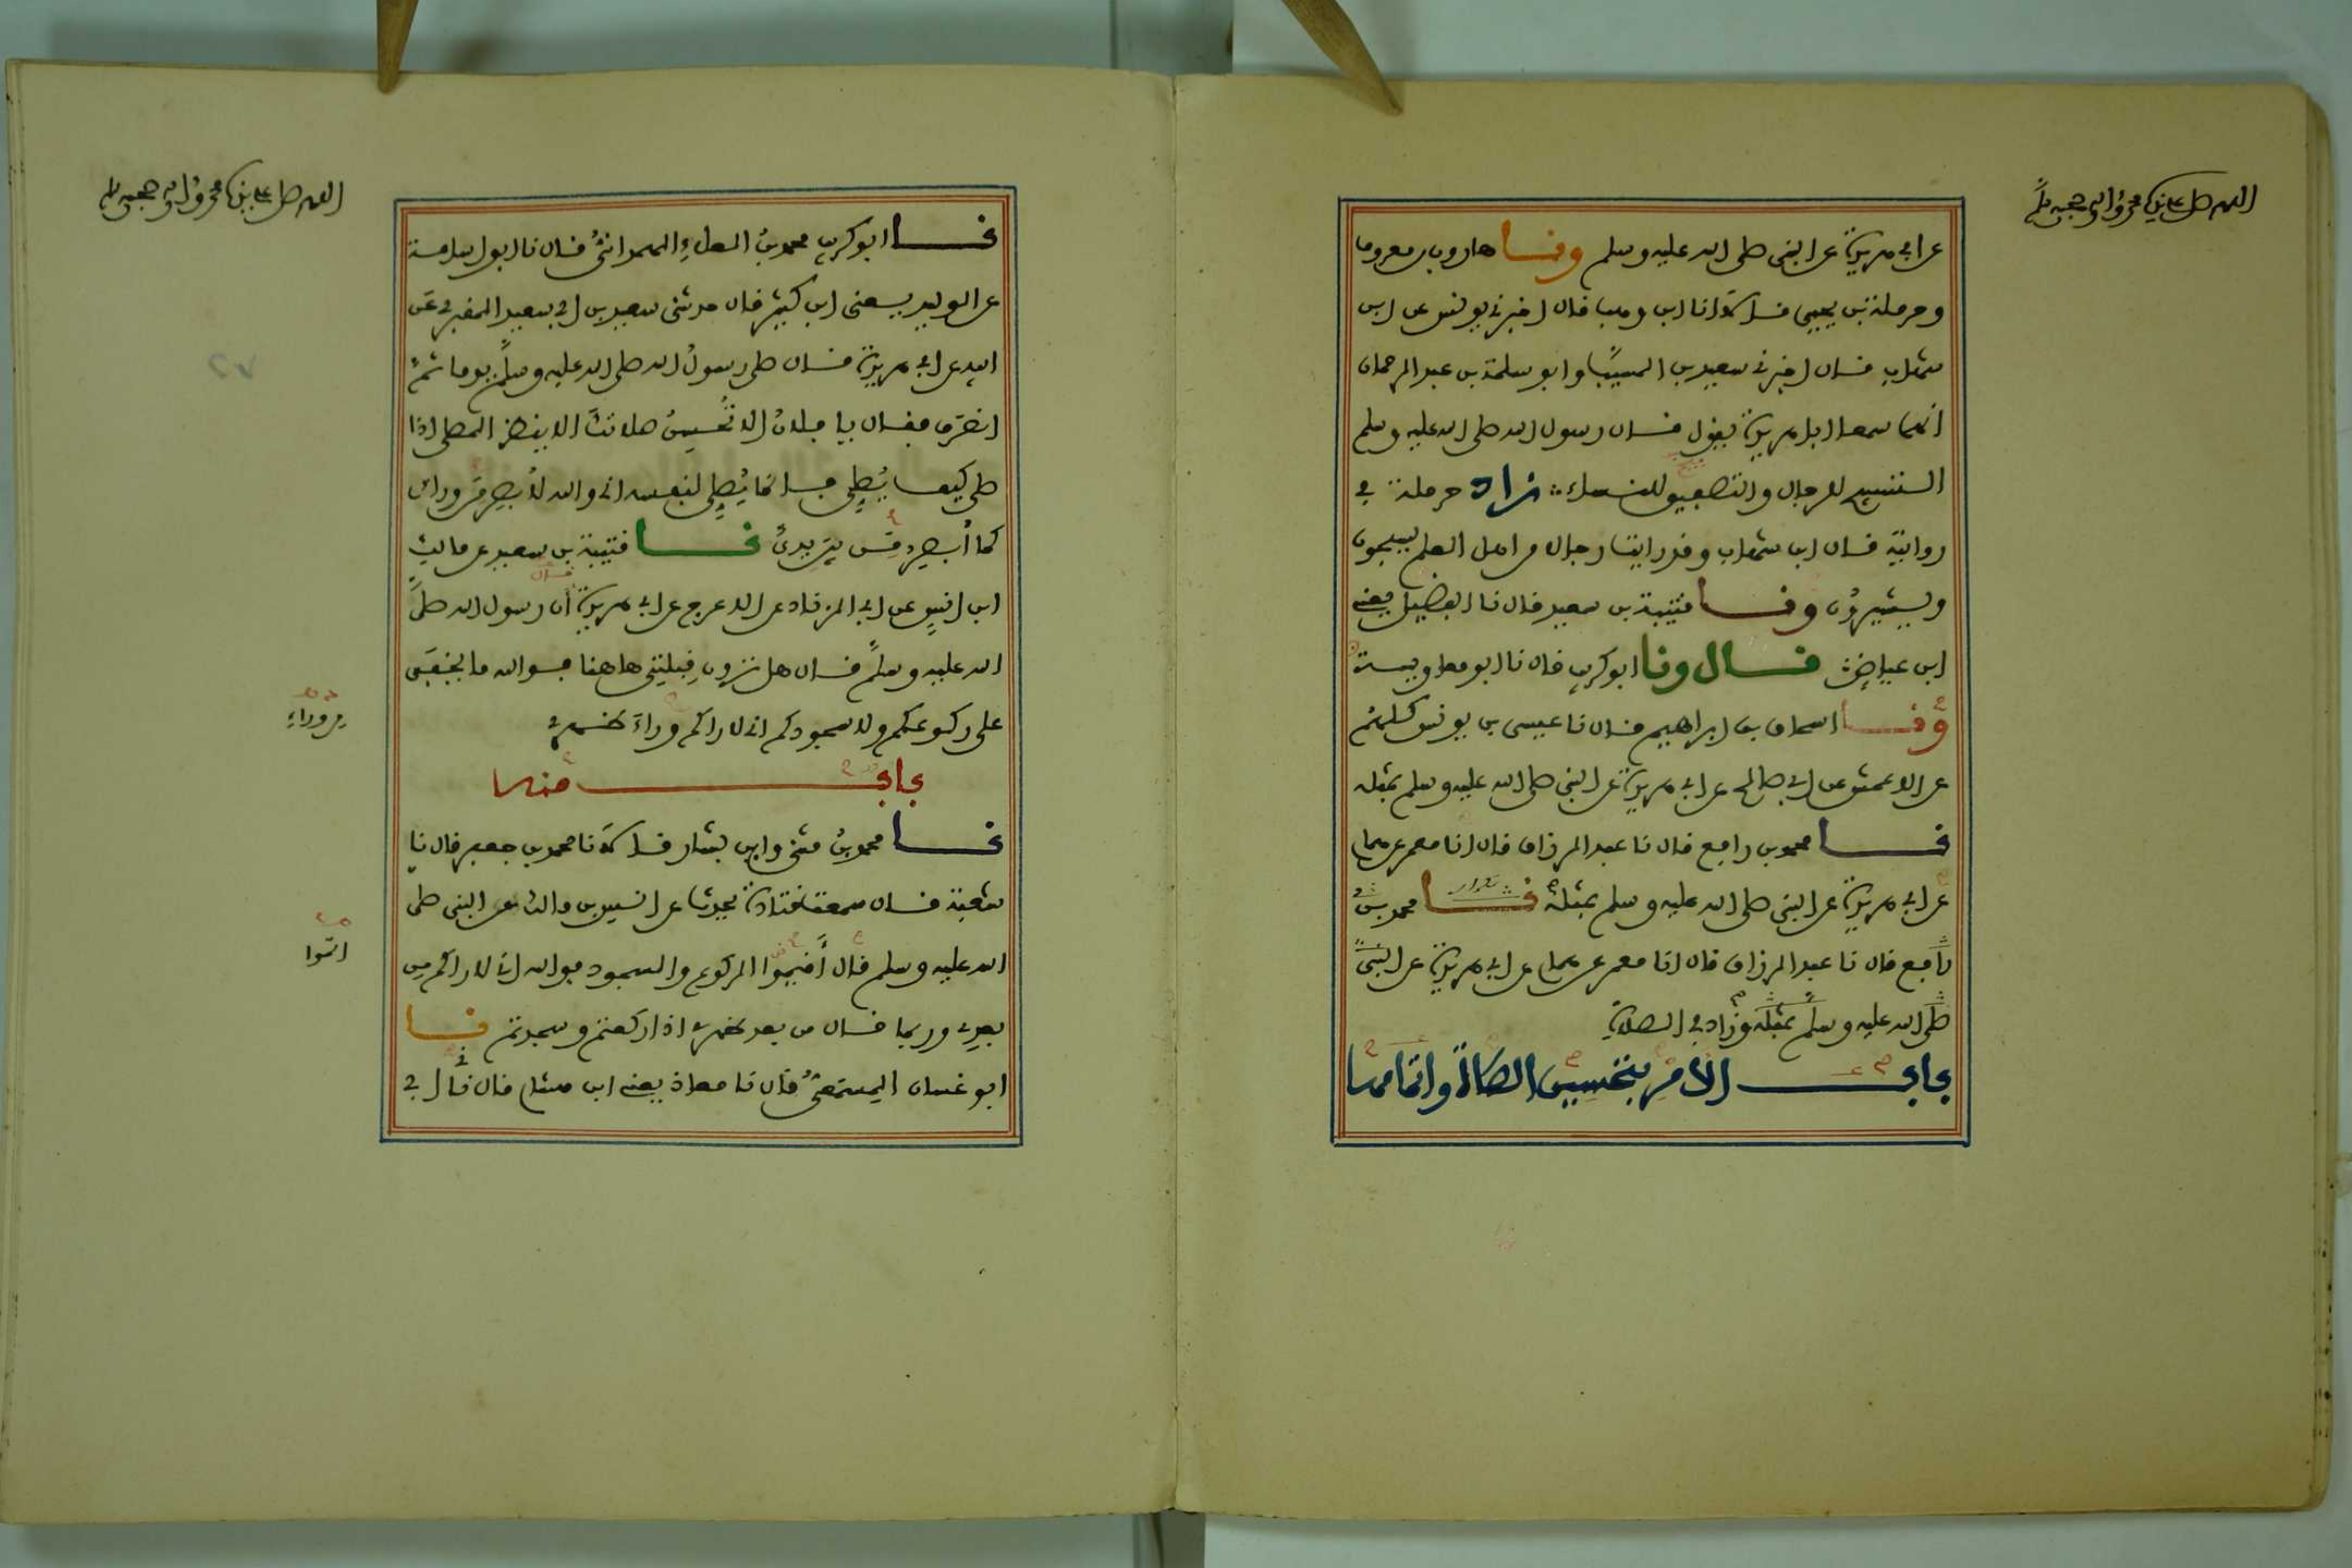 اللهم صل على نبيك محمد وآله وصحبه وسلم
عن ابي هريرة عن النبي صلى الله عليه وسلم ونا هارون بن معروف
وحرملة بن يحيى قالا انا ابن وهب قال اخبرني يونس عن ابن
شهاب قال اخبرني سعيد بن المسيب وابو سلمة بن عبد الرحمان
انهما سمعا ابا هريرة يقول قال رسول الله صلى الله عليه وسلم
التسبيح للرجال والتصفيق للنساء زاد حرملة في
روايته قال ابن شهاب وقد رايت رجالا من اهل العلم يسبحون
ويشيرون ونا قتيبة بن سعيد قال نا الفضيل يعني
ابن عياض قال ونا ابو كريب قال نا ابو معاوية
ونا اسحاق بن ابراهيم قال نا عيسى بن يونس كلهم
عن الاعمش عن ابي صالح عن ابي هريرة عن النبي صلى الله عليه وسلم بمثله
نا محمد بن رافع قال نا عبد الرزاق قال انا معمر عن همام
عن ابي هريرة عن النبي صلى الله عليه وسلم بمثله نا محمد بن
تكرار
رافع قال نا عبد الرزاق قال انا معمر عن همام عن ابي هريرة عن النبي
صلى الله عليه وسلم بمثله وزاد في الصلاة
باب الامر بتحسين الصلاة واتمامها
اللهم صل على نبيك محمد وآله وصحبه وسلم
نا ابو كريب محمد بن العلاء الهمداني قال نا ابو اسامة
عن الوليد يعني ابن كثير قال حدثني سعيد بن ابي سعيد المقبري عن
ابيه عن ابي هريرة قال صلى رسول الله صلى الله عليه وسلم يوما ثم
انصرف فقال يا فلان الا تحسن صلاتك الا ينظر المصلي اذا
صلى كيف يصلي فانما يصلي لنفسه اني والله لأبصر من وراءى
كما أبصر من بين يدي نا قتيبة بن سعيد عن مالك
ابن انس عن ابي الزناد عن الاعرج عن ابي هريرة ان رسول الله صلى
قال
الله عليه وسلم قال هل ترون قبلتي هاهنا فوالله ما يخفى
على ركوعكم ولا سجودكم اني لاراكم وراء ظهري
من وراء
باب منه
نا محمد بن مثنى وابن بشار قالا نا محمد بن جعفر قال نا
شعبة قال سمعت قتادة يحدث عن انس بن مالك عن النبي صلى
الله عليه وسلم قال أقيموا الركوع والسجود فوالله اني لاراكم من
اتموا
بعدي وربما قال من بعد ظهري اذا ركعتم وسجدتم نا
ابو غسان المسمعي قال نا معاذ يعني ابن هشام قال نا ابي